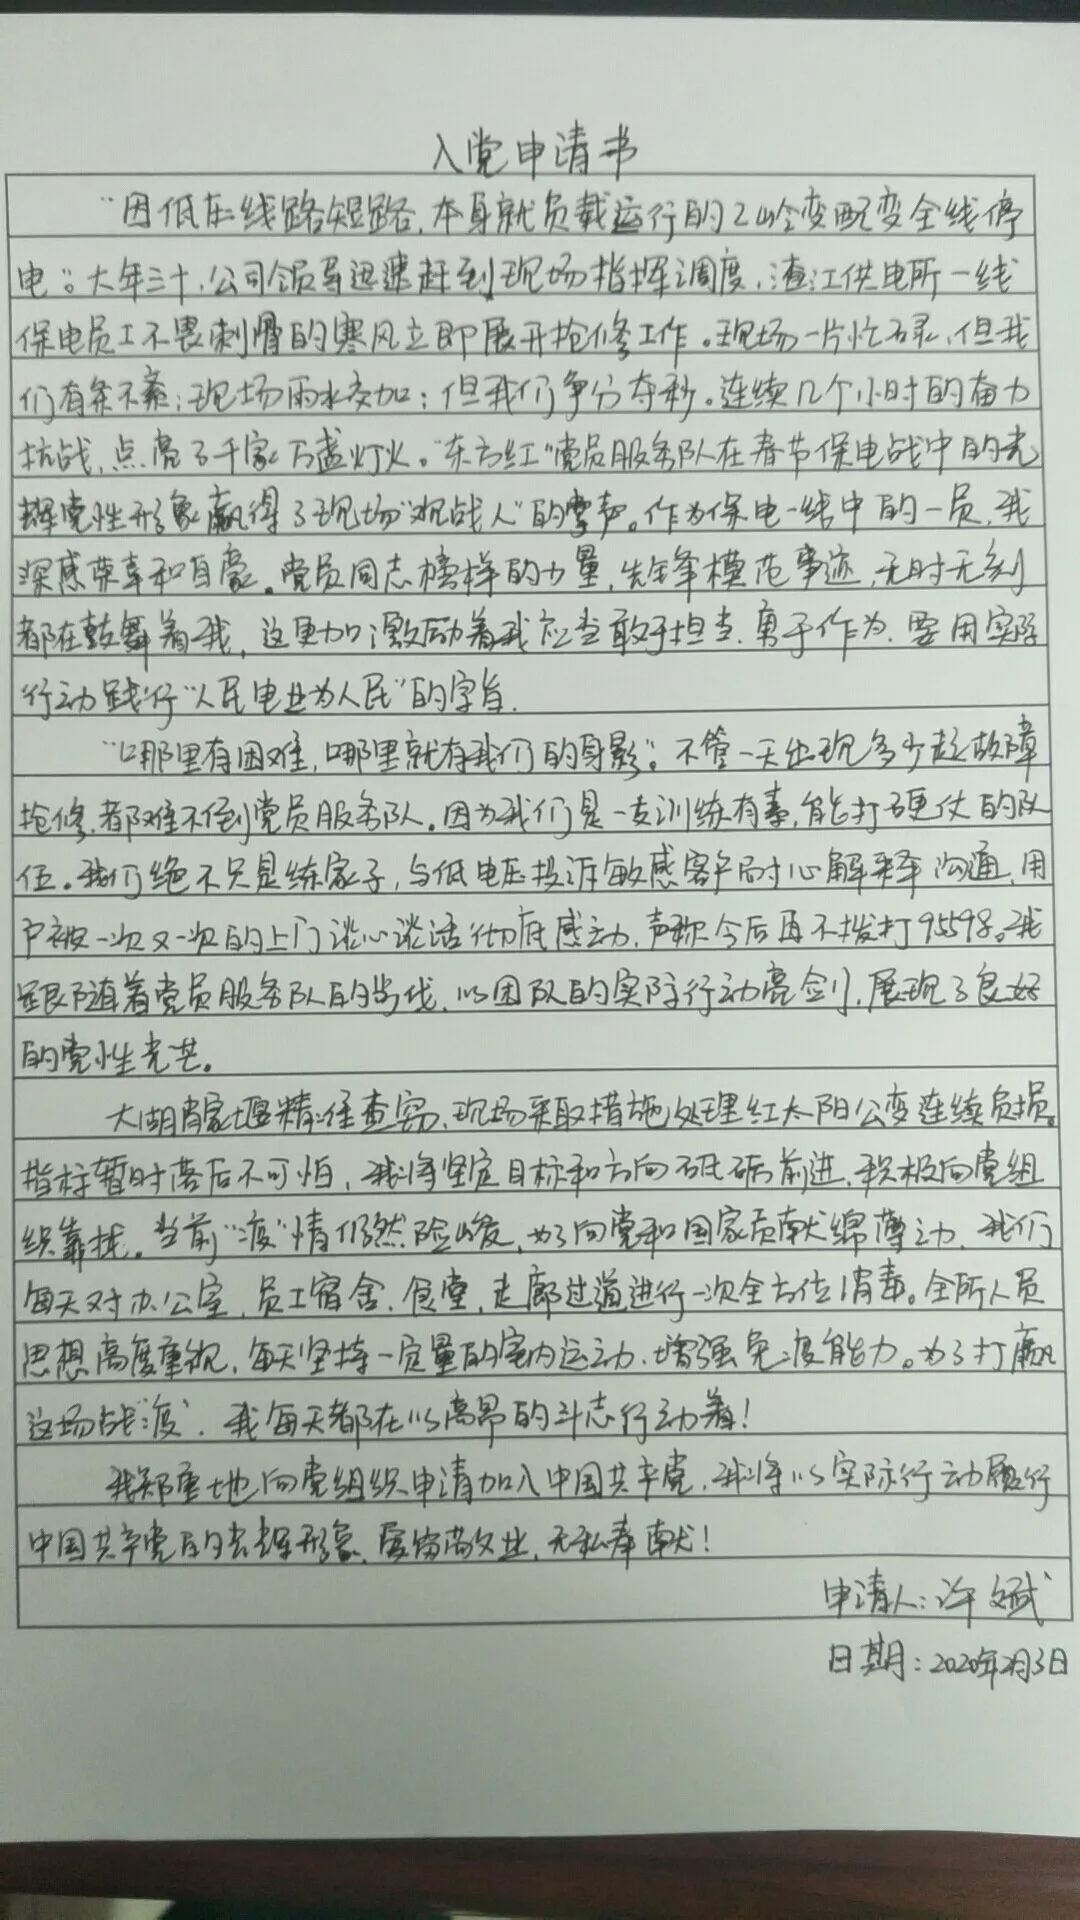 入党申请书
“因低压线路短路,本身就负载运行的乙岭变配变全线停
电”。大年三十,公司领导迅速赶到现场指挥调度,渣江供电所一线
保电员工不畏刺骨的寒风立即展开抢修工作。现场一片忙碌,但我
们有条不紊;现场雨水交加;但我们争分夺秒。连续几个小时的奋力
抗战,点亮了千家万盏灯火。“东方红”党员服务队在春节保电战中的光
辉党性形象赢得了现场“观战人”的掌声。作为保电一线中的一员,我
深感荣幸和自豪。党员同志榜样的力量,先锋模范事迹,无时无刻
都在鼓舞着我,这更加激励着我应当敢于担当,勇于作为,要用实际
行动践行“人民电业为人民”的宗旨.
“哪里有困难,哪里就有我们的身影”。不管一天出现多少起故障
抢修,都难不倒党员服务队。因为我们是一支训练有素,能打硬仗的队
伍。我们绝不只是练家子,与低电压投诉敏感客户耐心解释沟通,用
户被一次又一次的上门谈心谈话彻底感动,声称今后再不拨打95598。我
跟随着党员服务队的步伐,以团队的实际行动亮剑,展现了良好
的党性光芒。
大湖肖家堰精准查窃,现场采取措施处理红太阳公变连续负损。
指标暂时落后不可怕,我将坚定目标和方向砥砺前进,积极向党组
织靠拢。当前“疫”情仍然险峻,为了向党和国家贡献绵薄力,我们
每天对办公室,员工宿舍,食堂,走廊过道进行一次全方位消毒。全所人员
思想高度重视,每天坚持一定量的室内运动,增强免疫能力。为了打赢
这场战“疫”,我每天都在以高昂的斗志行动着!
我郑重地向党组织申请加入中国共产党,我将以实际行动履行
中国共产党的光辉形象,爱岗敬业,无私奉献!
申请人:许斌
日期:2020年2月3日